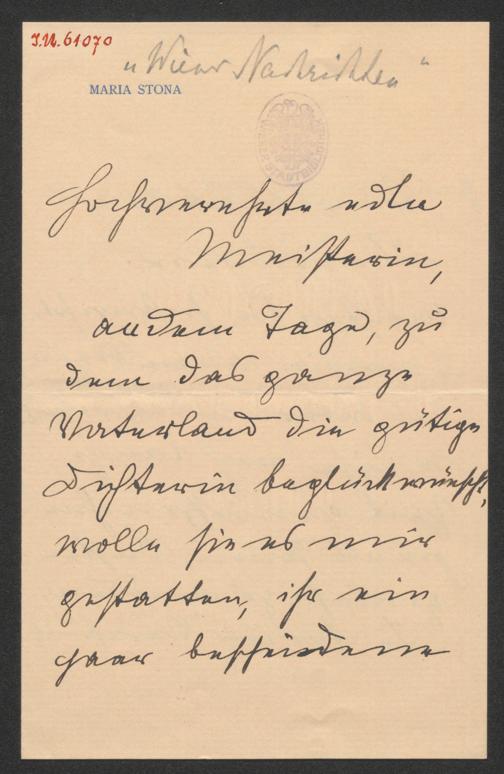 I.N. 61070
„Wiener Nachrichten"
MARIA STONA
Hochverehrte edle
Meisterin,
an dem Tage, zu
dem das ganze
Vaterland die gütige
Dichterin beglückwünscht,
wolle sie es mir
gestatten, ihr ein
paar bescheidene